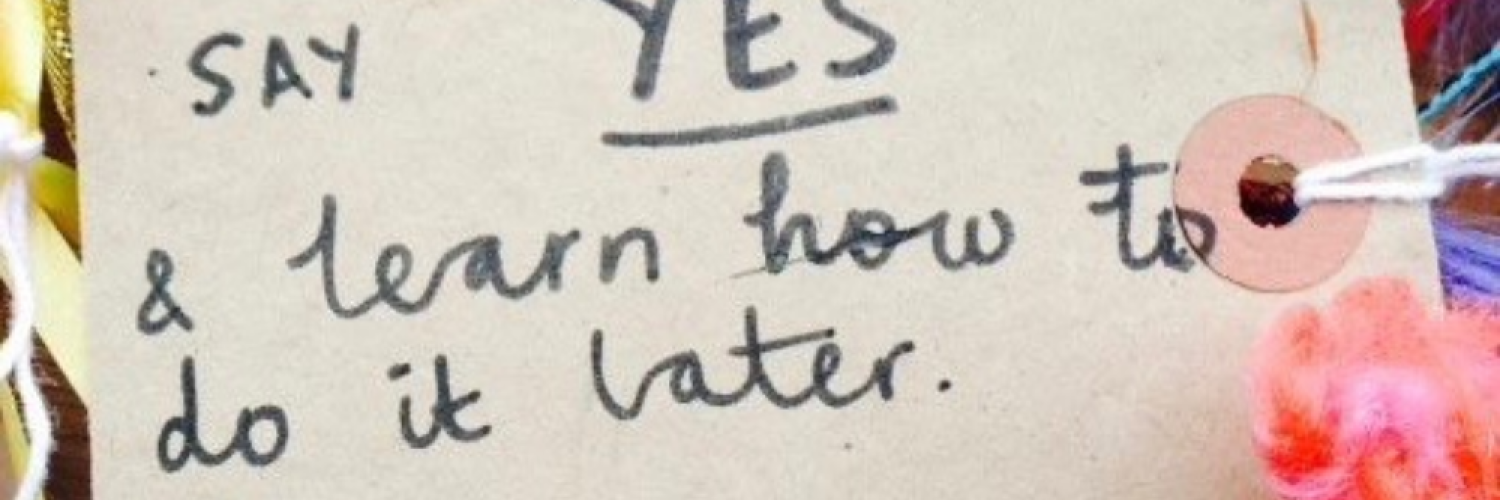 SAY YES
& learn how to
do it later.